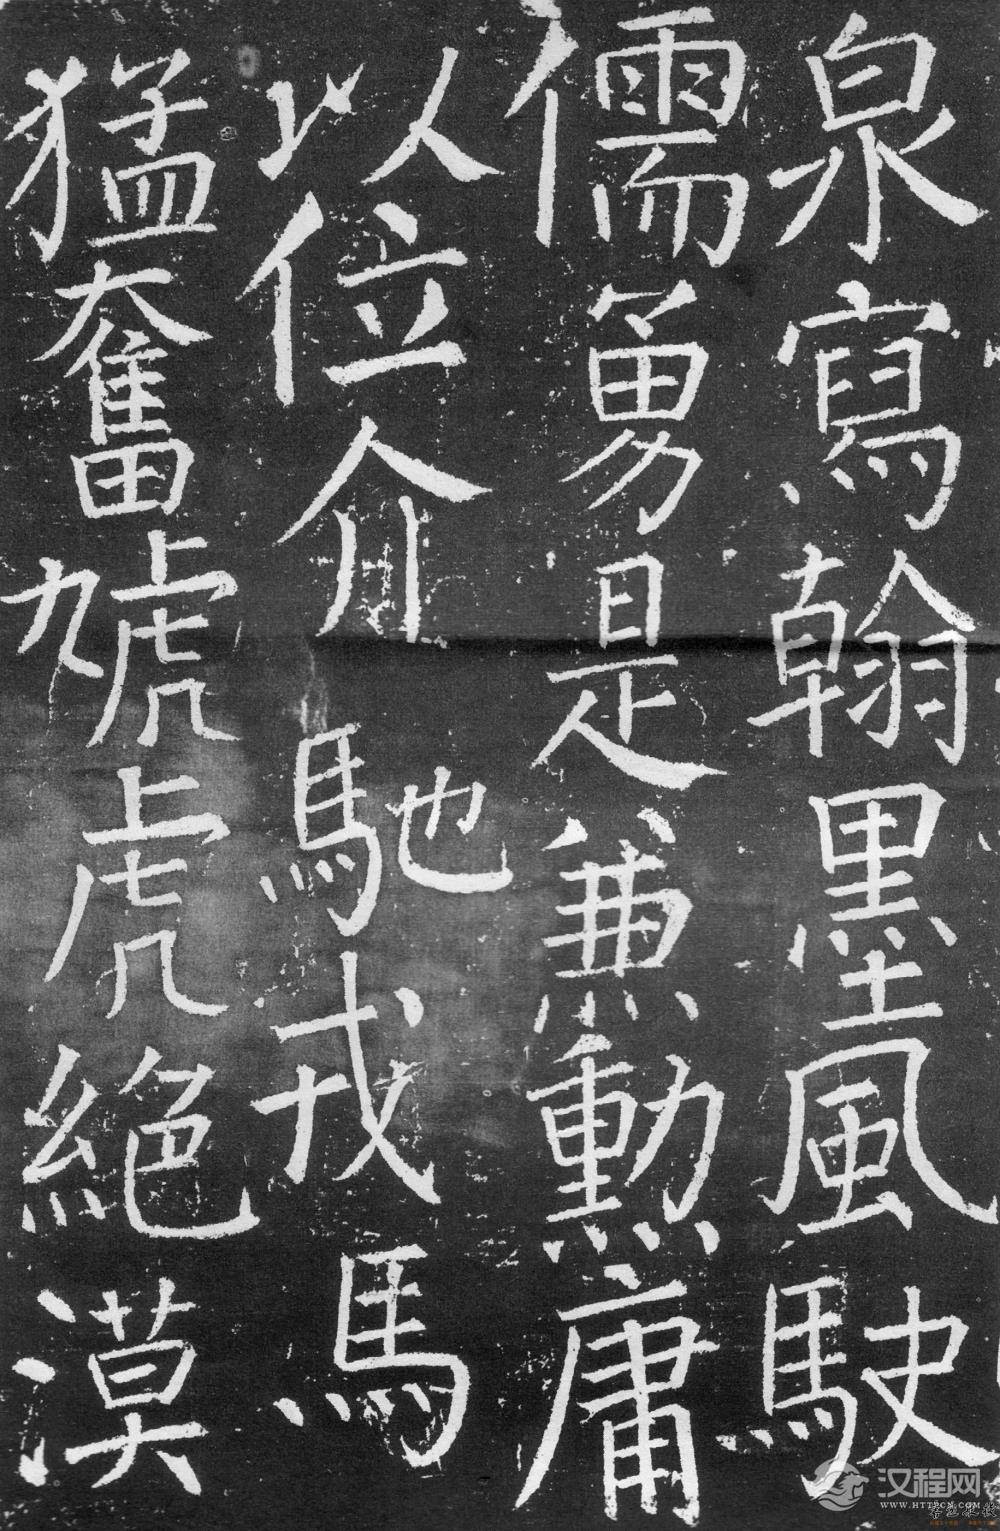 泉寫翰墨風駛
儒勇是兼勳庸
以位介馳戎馬
猛奮虓虎絕漠
汉程网
WWW.HTTPCN.COM